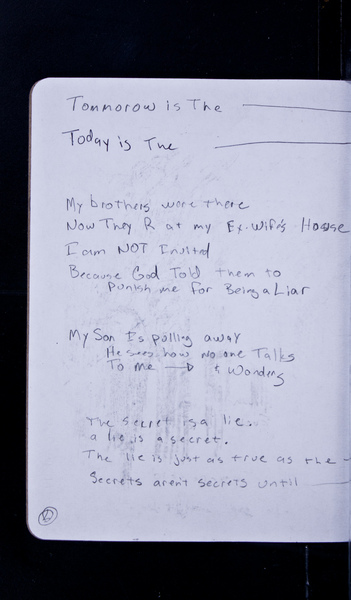 Tommorow is The
Today is The
My brothers were there
Now They R at my Ex-Wife's House
I am NOT Invited
Because God Told them to
Punish me for Being a Liar
My Son Is pulling away
He sees how no one Talks
To me → & Wonders
The secret is a lie.
a lie is a secret.
The lie is just as true as the
Secrets aren't secrets until